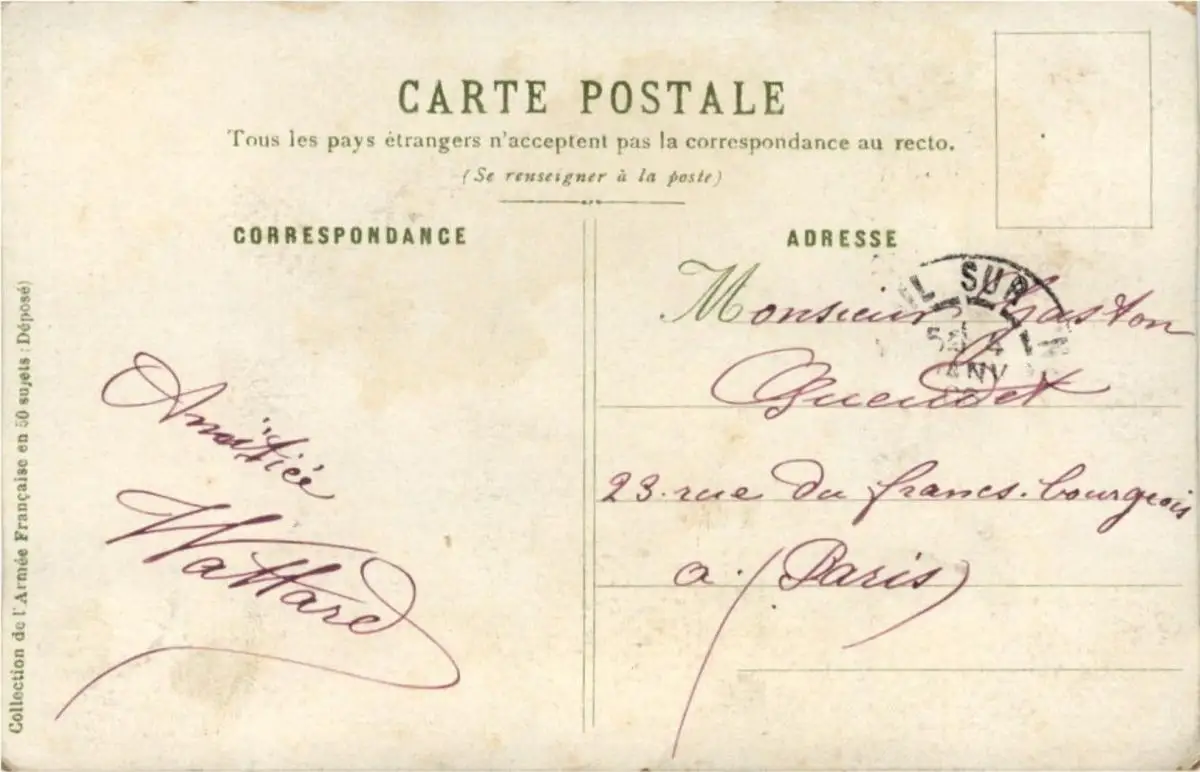 CARTE POSTALE
Tous les pays étrangers n'acceptent pas la correspondance au recto.
(Se renseigner à la poste)
CORRESPONDANCE
ADRESSE
SUR
Monsieur Gaston
Gueudet
23. rue du francs. bourgeois
a. (Paris)
Amitiée
Wattard
Collection de l'Armée Française en 50 sujets (Déposé)